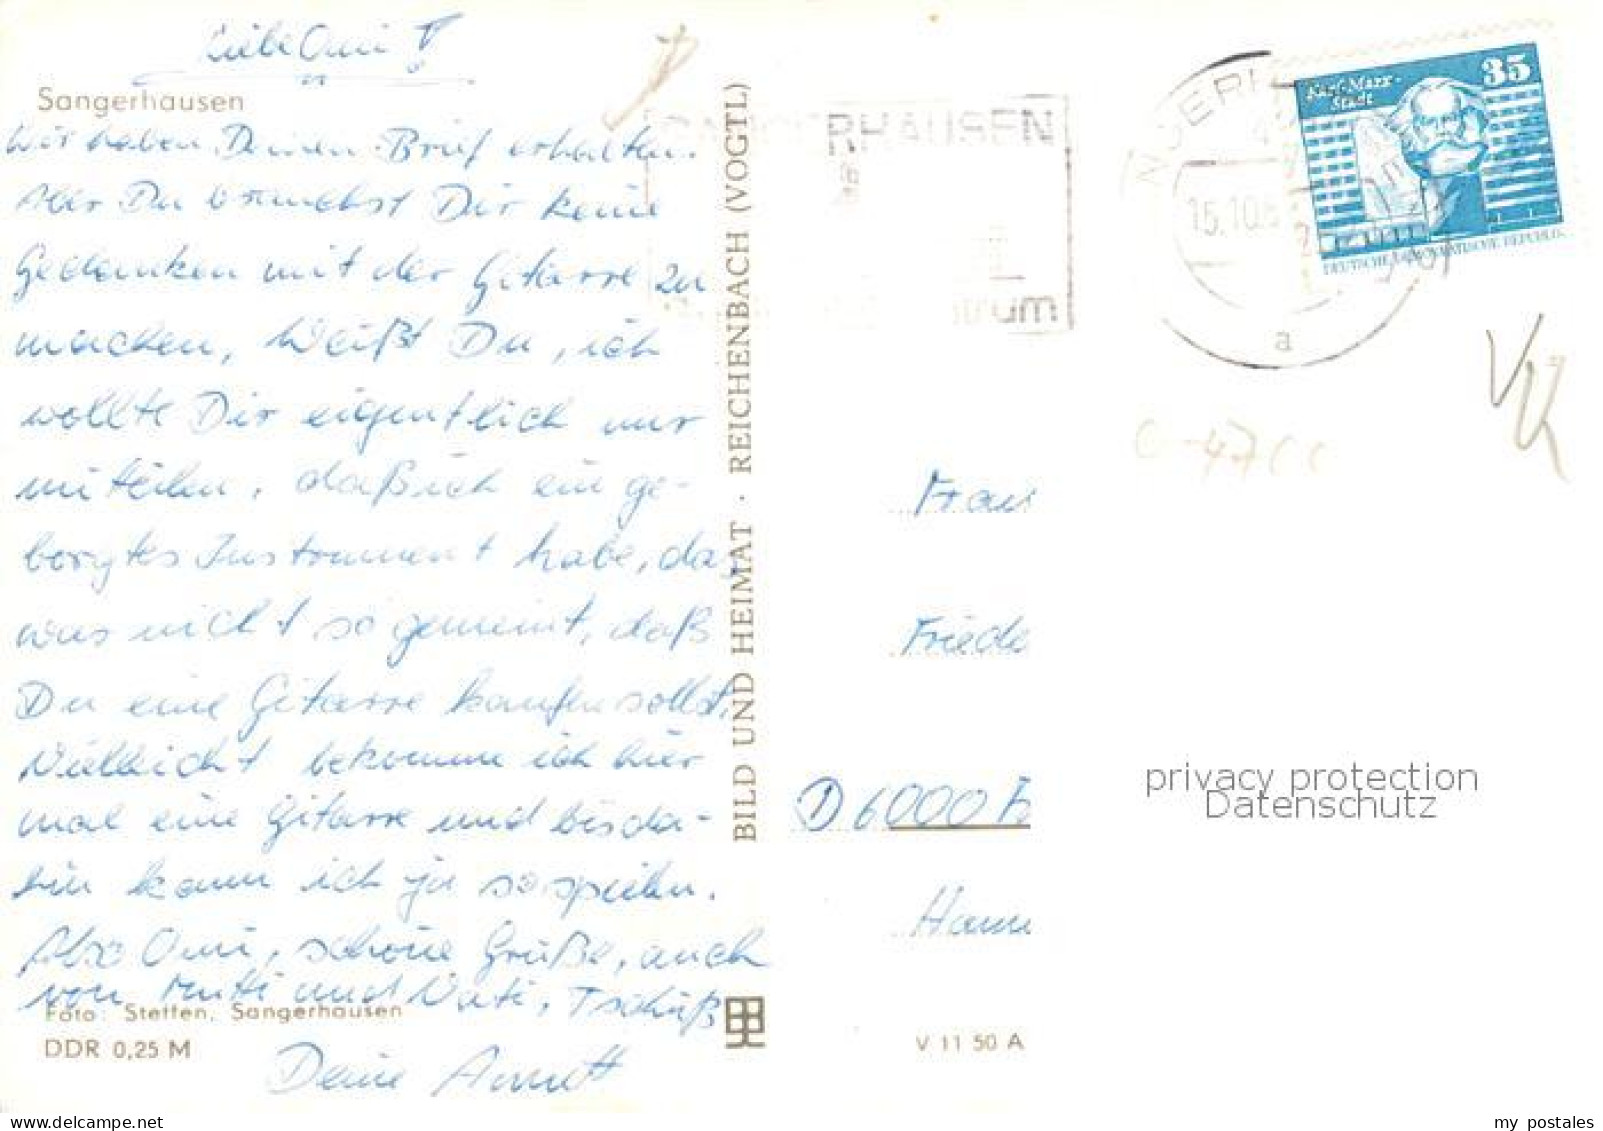 Liebe Omi!
Sangerhausen
Wir haben Deinen Brief erhalten.
Aber Du brauchst Dir keine
Gedanken mit der Gitarre zu
machen, Weißt Du, ich
wollte Dir eigentlich nur
mitteilen, daß ich ein ge-
borgtes Instrument habe, das
was nicht so gemeint, daß
Du eine Gitarre kaufen sollst,
Vielleicht bekomme ich hier
mal eine Gitarre und bis da-
hin kann ich ja so spielen.
Also Omi, schöne Grüße, auch
von Mutti und Vati, Tschüß
Deine Annett
Foto: Stetten, Sangerhausen
DDR 0,25 M
BILD UND HEIMAT · REICHENBACH (VOGTL)
V 11 50 A
RHAUSEN
trum
15.10.
a
35
Karl-Marx-
Stadt
DEUTSCHE DEMOKRATISCHE REPUBLIK
Frau
Friede
D 6000 F
Hann
privacy protection
Datenschutz
my postales